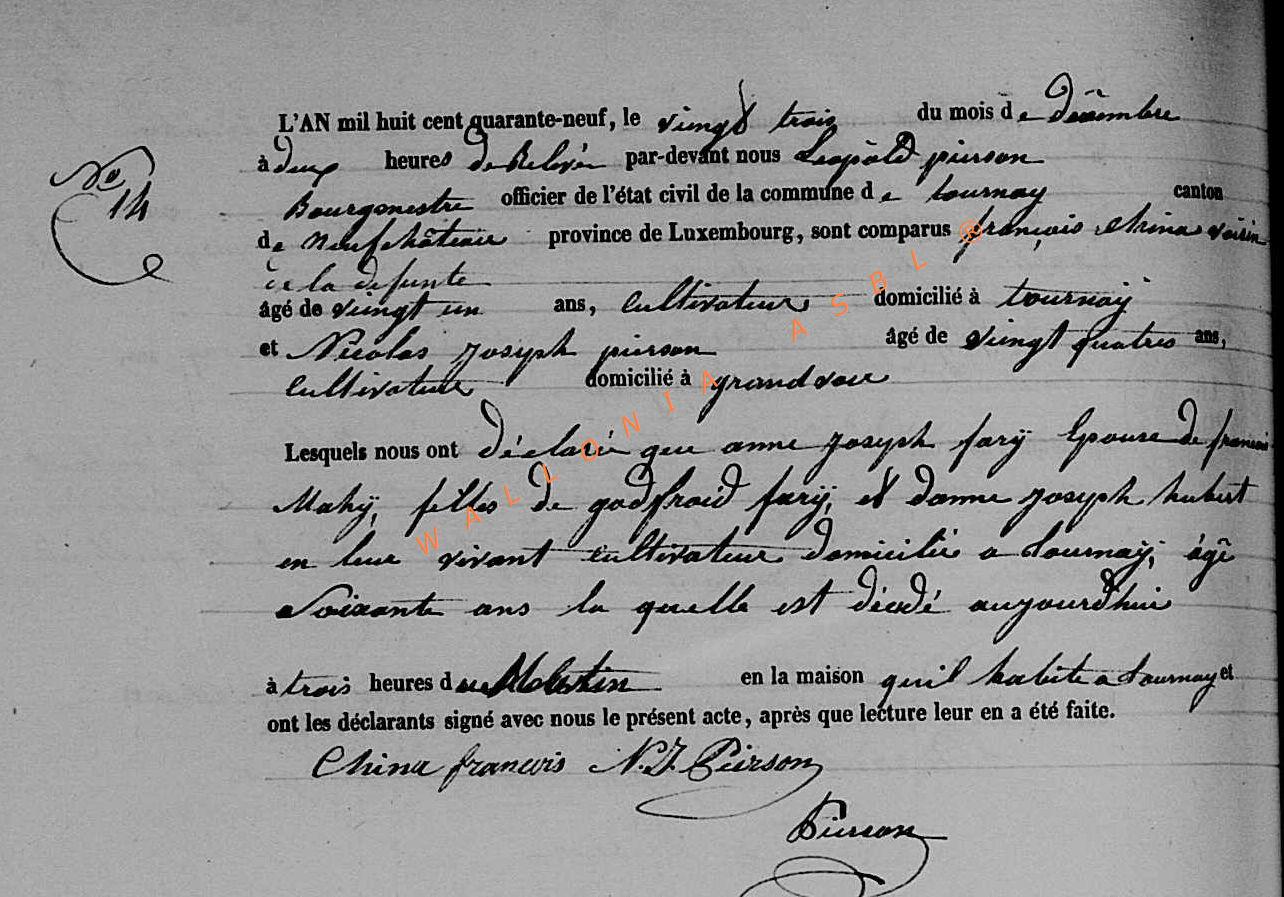 L'AN mil huit cent quarante-neuf, le vingt trois du mois de décembre
N° 14
à deux heures de Relevée par-devant nous Léopold pierson
Bourgmestre officier de l'état civil de la commune de tournay canton
de Neufchâteau province de Luxembourg, sont comparus françois China voisin
de la defunte
âgé de vingt un ans, Cultivateur domicilié à tournay
et Nicolas Joseph pierson âgé de vingt quatres ans,
Cultivateur domicilié à grandvoir
Lesquels nous ont déclaré que anne Joseph fary Epouse de francois
Mahy, filles de godfroid fary, et danne Joseph hubert
en leur vivant cultivateur domicilié a tournay, âgé
Soixante ans la quelle est décédé aujourdhui
à trois heures du Matin en la maison qu'il habite a tournay et
ont les déclarants signé avec nous le présent acte, après que lecture leur en a été faite.
China francois N. J. Pierson
Pierson
WALLONIA ASBL ®